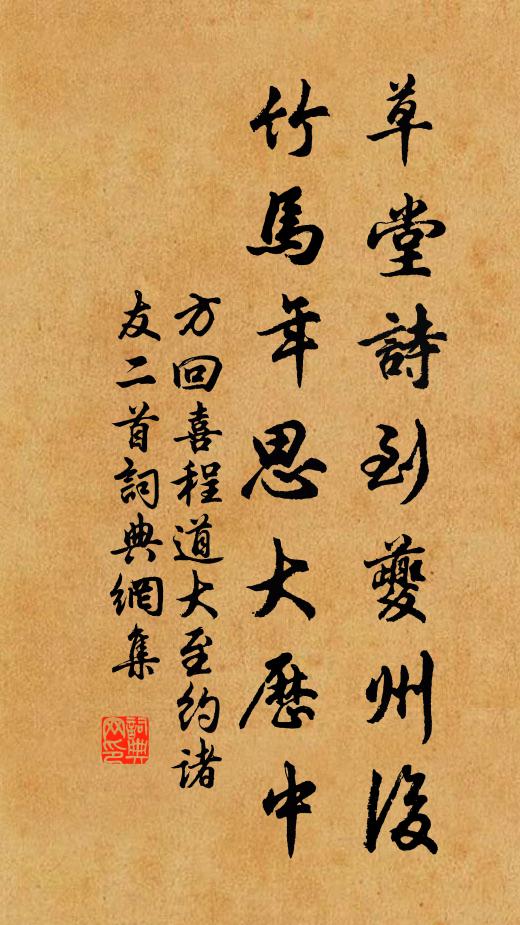 草堂詩到夔州後
竹馬年思大歷中
方回喜程道大至約諸
友二首詞典網集
詞典網印